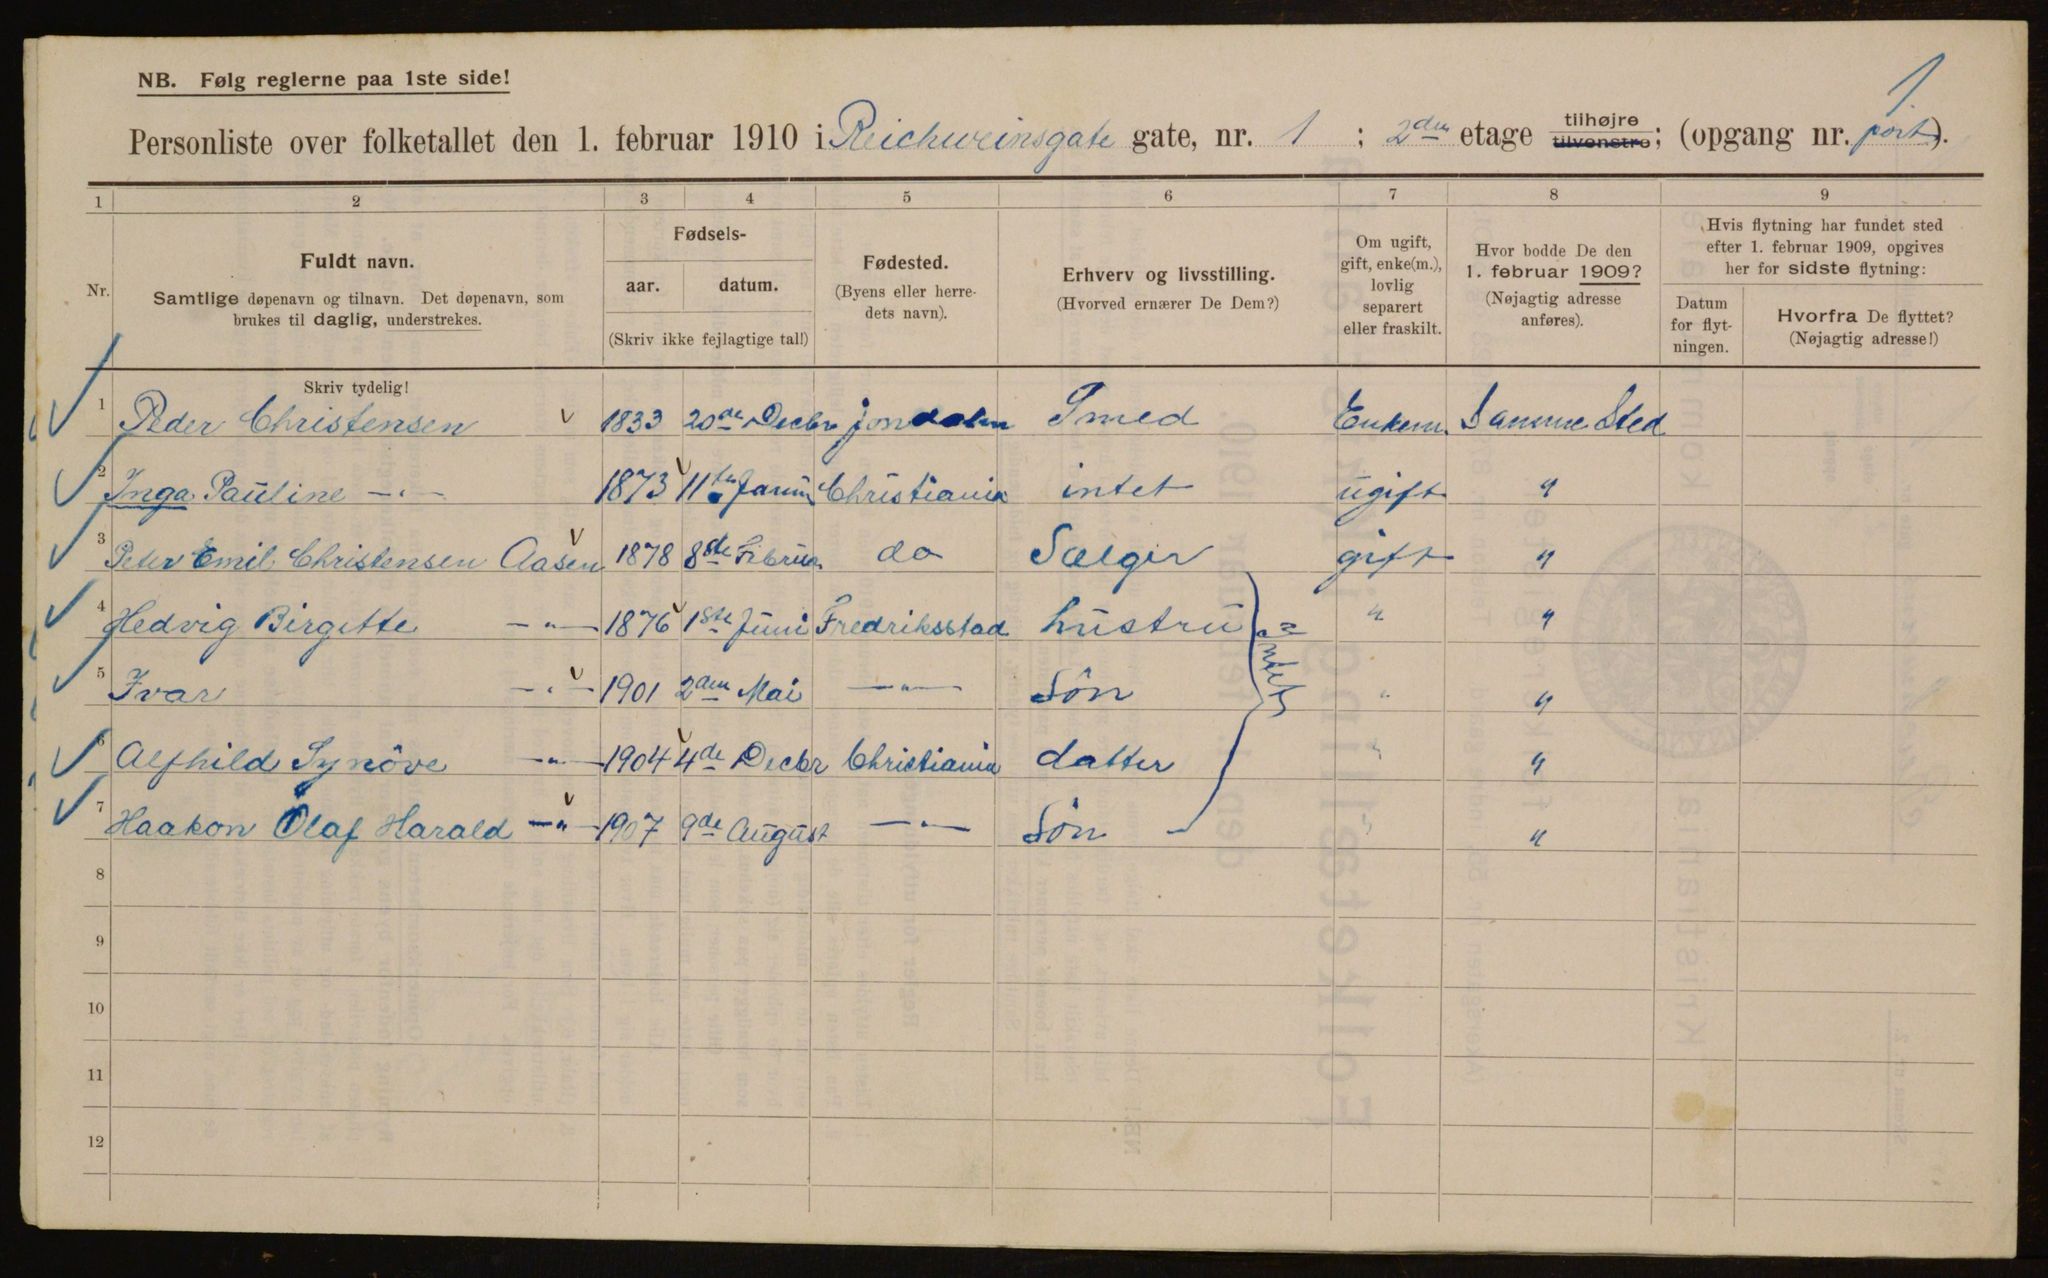 1.
NB. Følg reglerne paa 1ste side!
Personliste over folketallet den 1. februar 1910 i Reichweinsgate gate, nr. 1 ; 2den etage tilhøjre tilvenstre; (opgang nr. port).
1 2 3 4 5 6 7 8 9
Nr.
Fuldt navn.
Samtlige døpenavn og tilnavn. Det døpenavn, som
brukes til daglig, understrekes.
Fødsels-
aar. datum.
(Skriv ikke fejlagtige tal!)
Fødested.
(Byens eller herre-
dets navn).
Erhverv og livsstilling.
(Hvorved ernærer De Dem?)
Om ugift,
gift, enke(m.),
lovlig
separert
eller fraskilt.
Hvor bodde De den
1. februar 1909?
(Nøjagtig adresse
anføres).
Hvis flytning har fundet sted
efter 1. februar 1909, opgives
her for sidste flytning:
Datum
for flyt-
ningen.
Hvorfra De flyttet?
(Nøjagtig adresse!)
Skriv tydelig!
1 Peder Christensen 1833 20de Decbr Smed Enkem. Samme Sted
2 Inga Pauline —"— 1873 11te Christiania intet ugift "
3 Peter Emil Christensen Aasen 1878 8de do Sælger gift "
4 Hedvig Birgitte —"— 1876 1ste Juni Fredriksstad hustru " "
5 Ivar —"— 1901 2den Mai —"— Sön " "
intet
6 Alfhild Synöve —"— 1904 4de Decbr Christiania datter " "
7 Haakon Olaf Harald —"— 1907 9de August —"— Sön " "
8
9
10
11
12